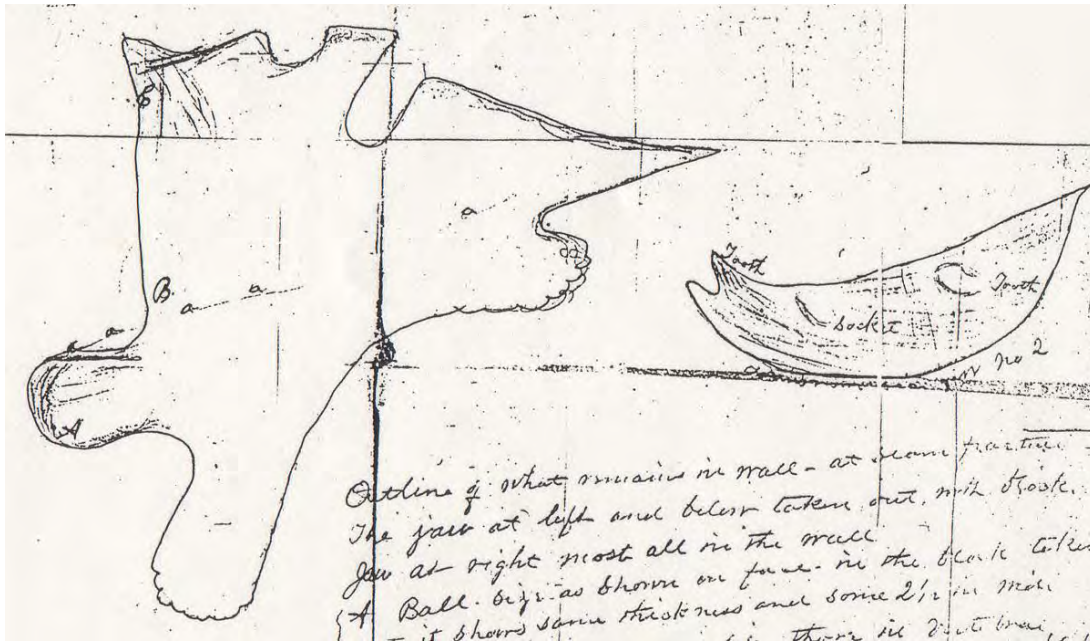 C
a
B
B.
a
a
a
A
Tooth
Tooth
Socket
a
in no 2
Outline of what remains in wall - at seam fracture
The jaw at left and below taken out with block.
Jaw at right most all in the wall
A Ball. size as shown on face - in the block taken
it shows same thickness and some 2½ in more
there is